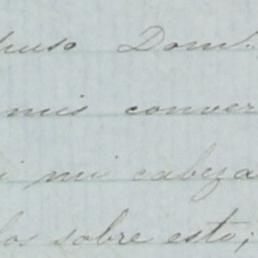 puso Dom.
mis conver
i mi cabeza
los sobre esto;